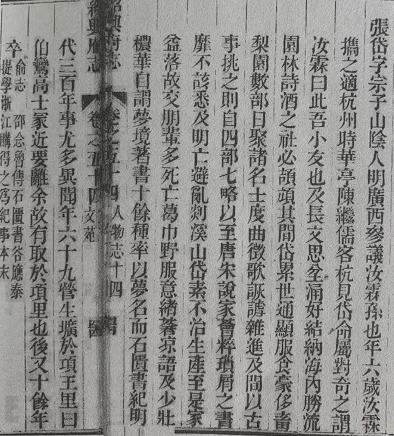 張岱字宗子山陰人明廣西參議汝霖孫也年六歲汝霖
攜之適杭州時華亭陳繼儒客杭見岱命屬對奇之謂
汝霖曰此吾小友也及長文思坌涌好結納海內勝流
園林詩酒之社必頡頏其間岱累世通顯服食豪侈畜
梨園數部日聚諸名士度曲徵歌詼謔雜進及間以古
事挑之則自四部七略以至唐宋說家薈粹瑣屑之書
靡不該悉及明亡避亂剡溪山岱素不治生產至是家
益落故交朋輩多死亡葛巾野服意緒蒼涼語及少壯
穠華自謂夢境著書十餘種率以夢名而石匱書紀明
紹興府志 卷之五十四 人物志十四
紹興府志 卷之五十四 文苑
代三百年事尤多異聞年六十九營生壙於項王里曰
伯鸞高士冢近要離余故有取於項里也後又十餘年
卒 俞志 邵念魯傳石匱書谷應泰
提學浙江購得之為紀事本末